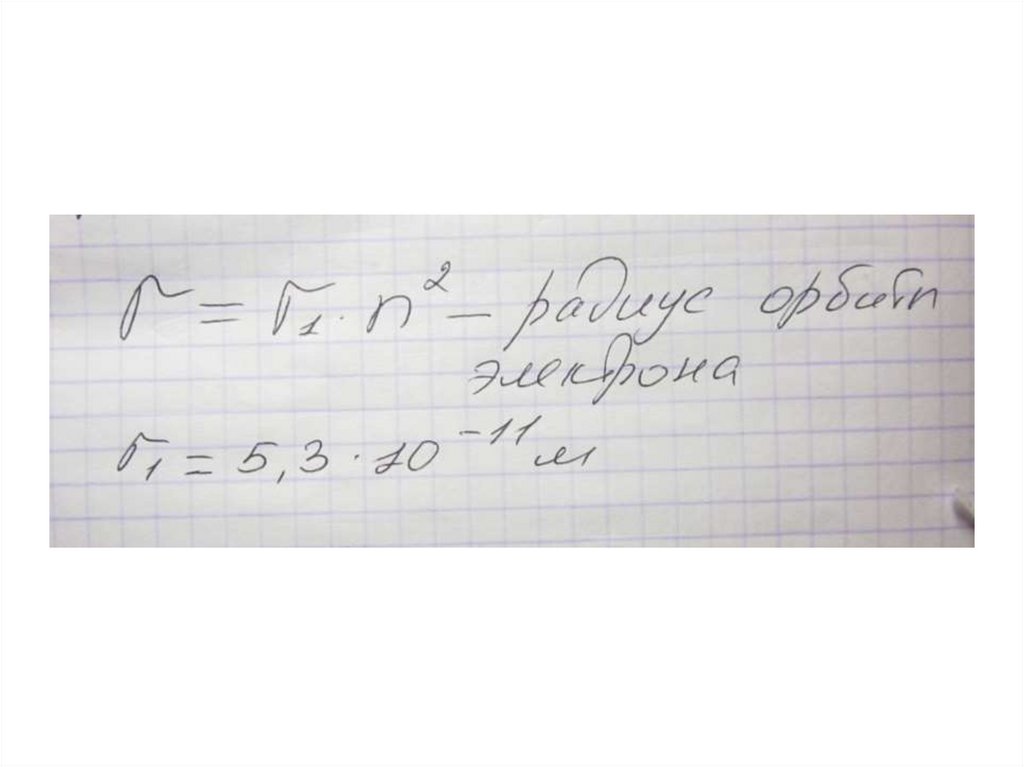 r = r₁ · n² – радиус орбиты
электрона
r₁ = 5,3 · 10⁻¹¹ м